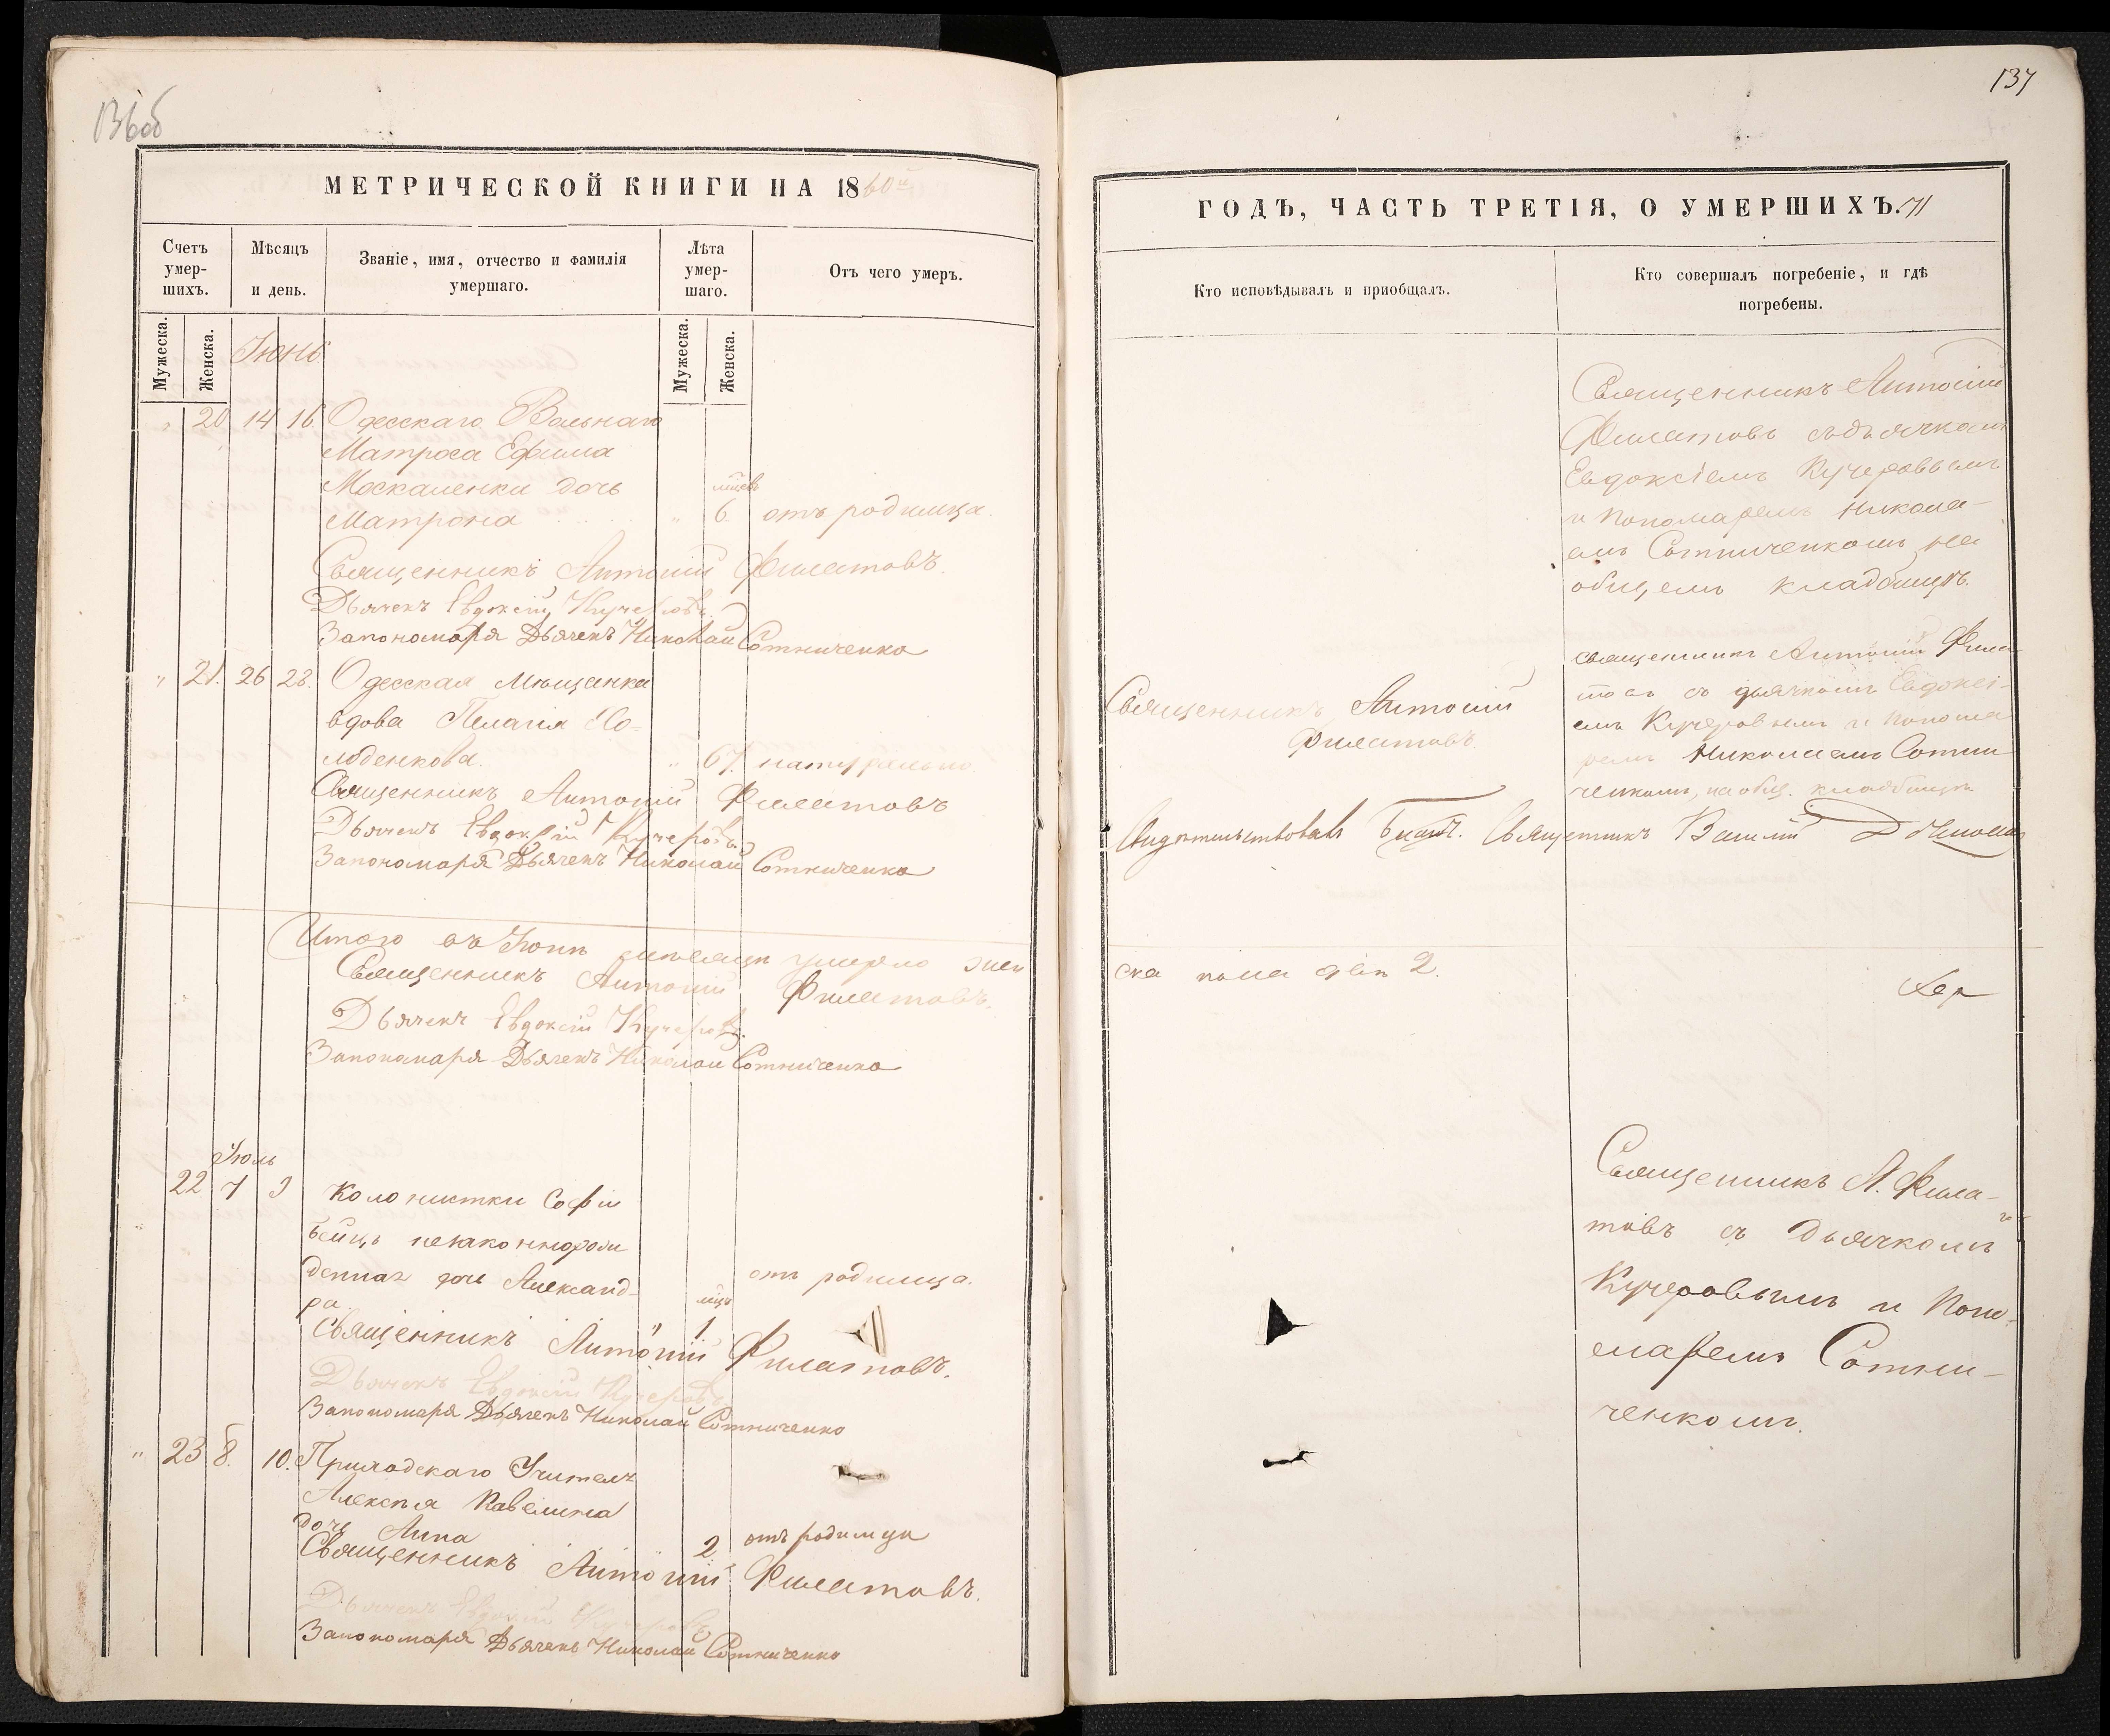 136об
МЕТРИЧЕСКОЙ КНИГИ НА 1860й
Счетъ умер-шихъ.
Мѣсяцъ и день.
Званіе, имя, отчество и фамилія умершаго.
Лѣта умер-шаго.
Отъ чего умеръ.
Мужеска.
Женска.
Мужеска.
Женска.
Іюнь
" 20 14 16 Одесскаго Вольнаго
Матроса Ефима
Москаленки дочь
Матрона " 6. отъ родимца.
Священникъ Антоній Филатовъ.
Дьячекъ Евдоксій Кучеровъ
За пономаря Дьячекъ Николай Сотниченко
" 21. 26 28. Одесская Мѣщанка
вдова Пелагія Со-
лоденкова. " 67. натурально.
Священникъ Антоній Филатовъ
Дьячекъ Евдоксій Кучеровъ
За пономаря Дьячекъ Николай Сотниченко
Итого въ Іюнѣ мѣсяцѣ умерло жен
Священникъ Антоній Филатовъ.
Дьячекъ Евдоксій Кучеровъ.
За пономаря Дьячекъ Николай Сотниченко
Іюль
22 7 9 Колонистки Софіи
незаконнорож
денная дочь Александ-
ра " 1 отъ родимца.
Священникъ Антоній Филатовъ.
Дьячекъ Евдоксій Кучеровъ
За пономаря Дьячекъ Николай Сотниченко
" 23 8. 10. Приходскаго Учителя
Алексѣя Кавелина
дочь Анна 2 отъ родимца
Священникъ Антоній Филатовъ.
Дьячекъ Евдоксій Кучеровъ
За пономаря Дьячекъ Николай Сотниченко
137
ГОДЪ, ЧАСТЬ ТРЕТІЯ, О УМЕРШИХЪ. 71
Кто исповѣдывалъ и приобщалъ.
Кто совершалъ погребеніе, и гдѣ погребены.
Священникъ Антоній
Филатовъ съ дьячкомъ
Евдоксіемъ Кучеровымъ
и Пономаремъ Никола-
емъ Сотниченкомъ на
общемъ кладбищѣ.
Священникъ Антоній
Филатовъ.
священникъ Антоній Фила
товъ съ дьячкомъ Евдоксі-
емъ Кучеровымъ и понома
ремъ Николаемъ Сотни
ченкомъ, на общ. кладбищѣ
Свидѣтельствовалъ Благоч. Священникъ Василій
ска пола двѣ 2.
Священникъ А. Фила-
товъ съ Дьячкомъ
Кучеровымъ и Поно-
маремъ Сотни-
ченкомъ.